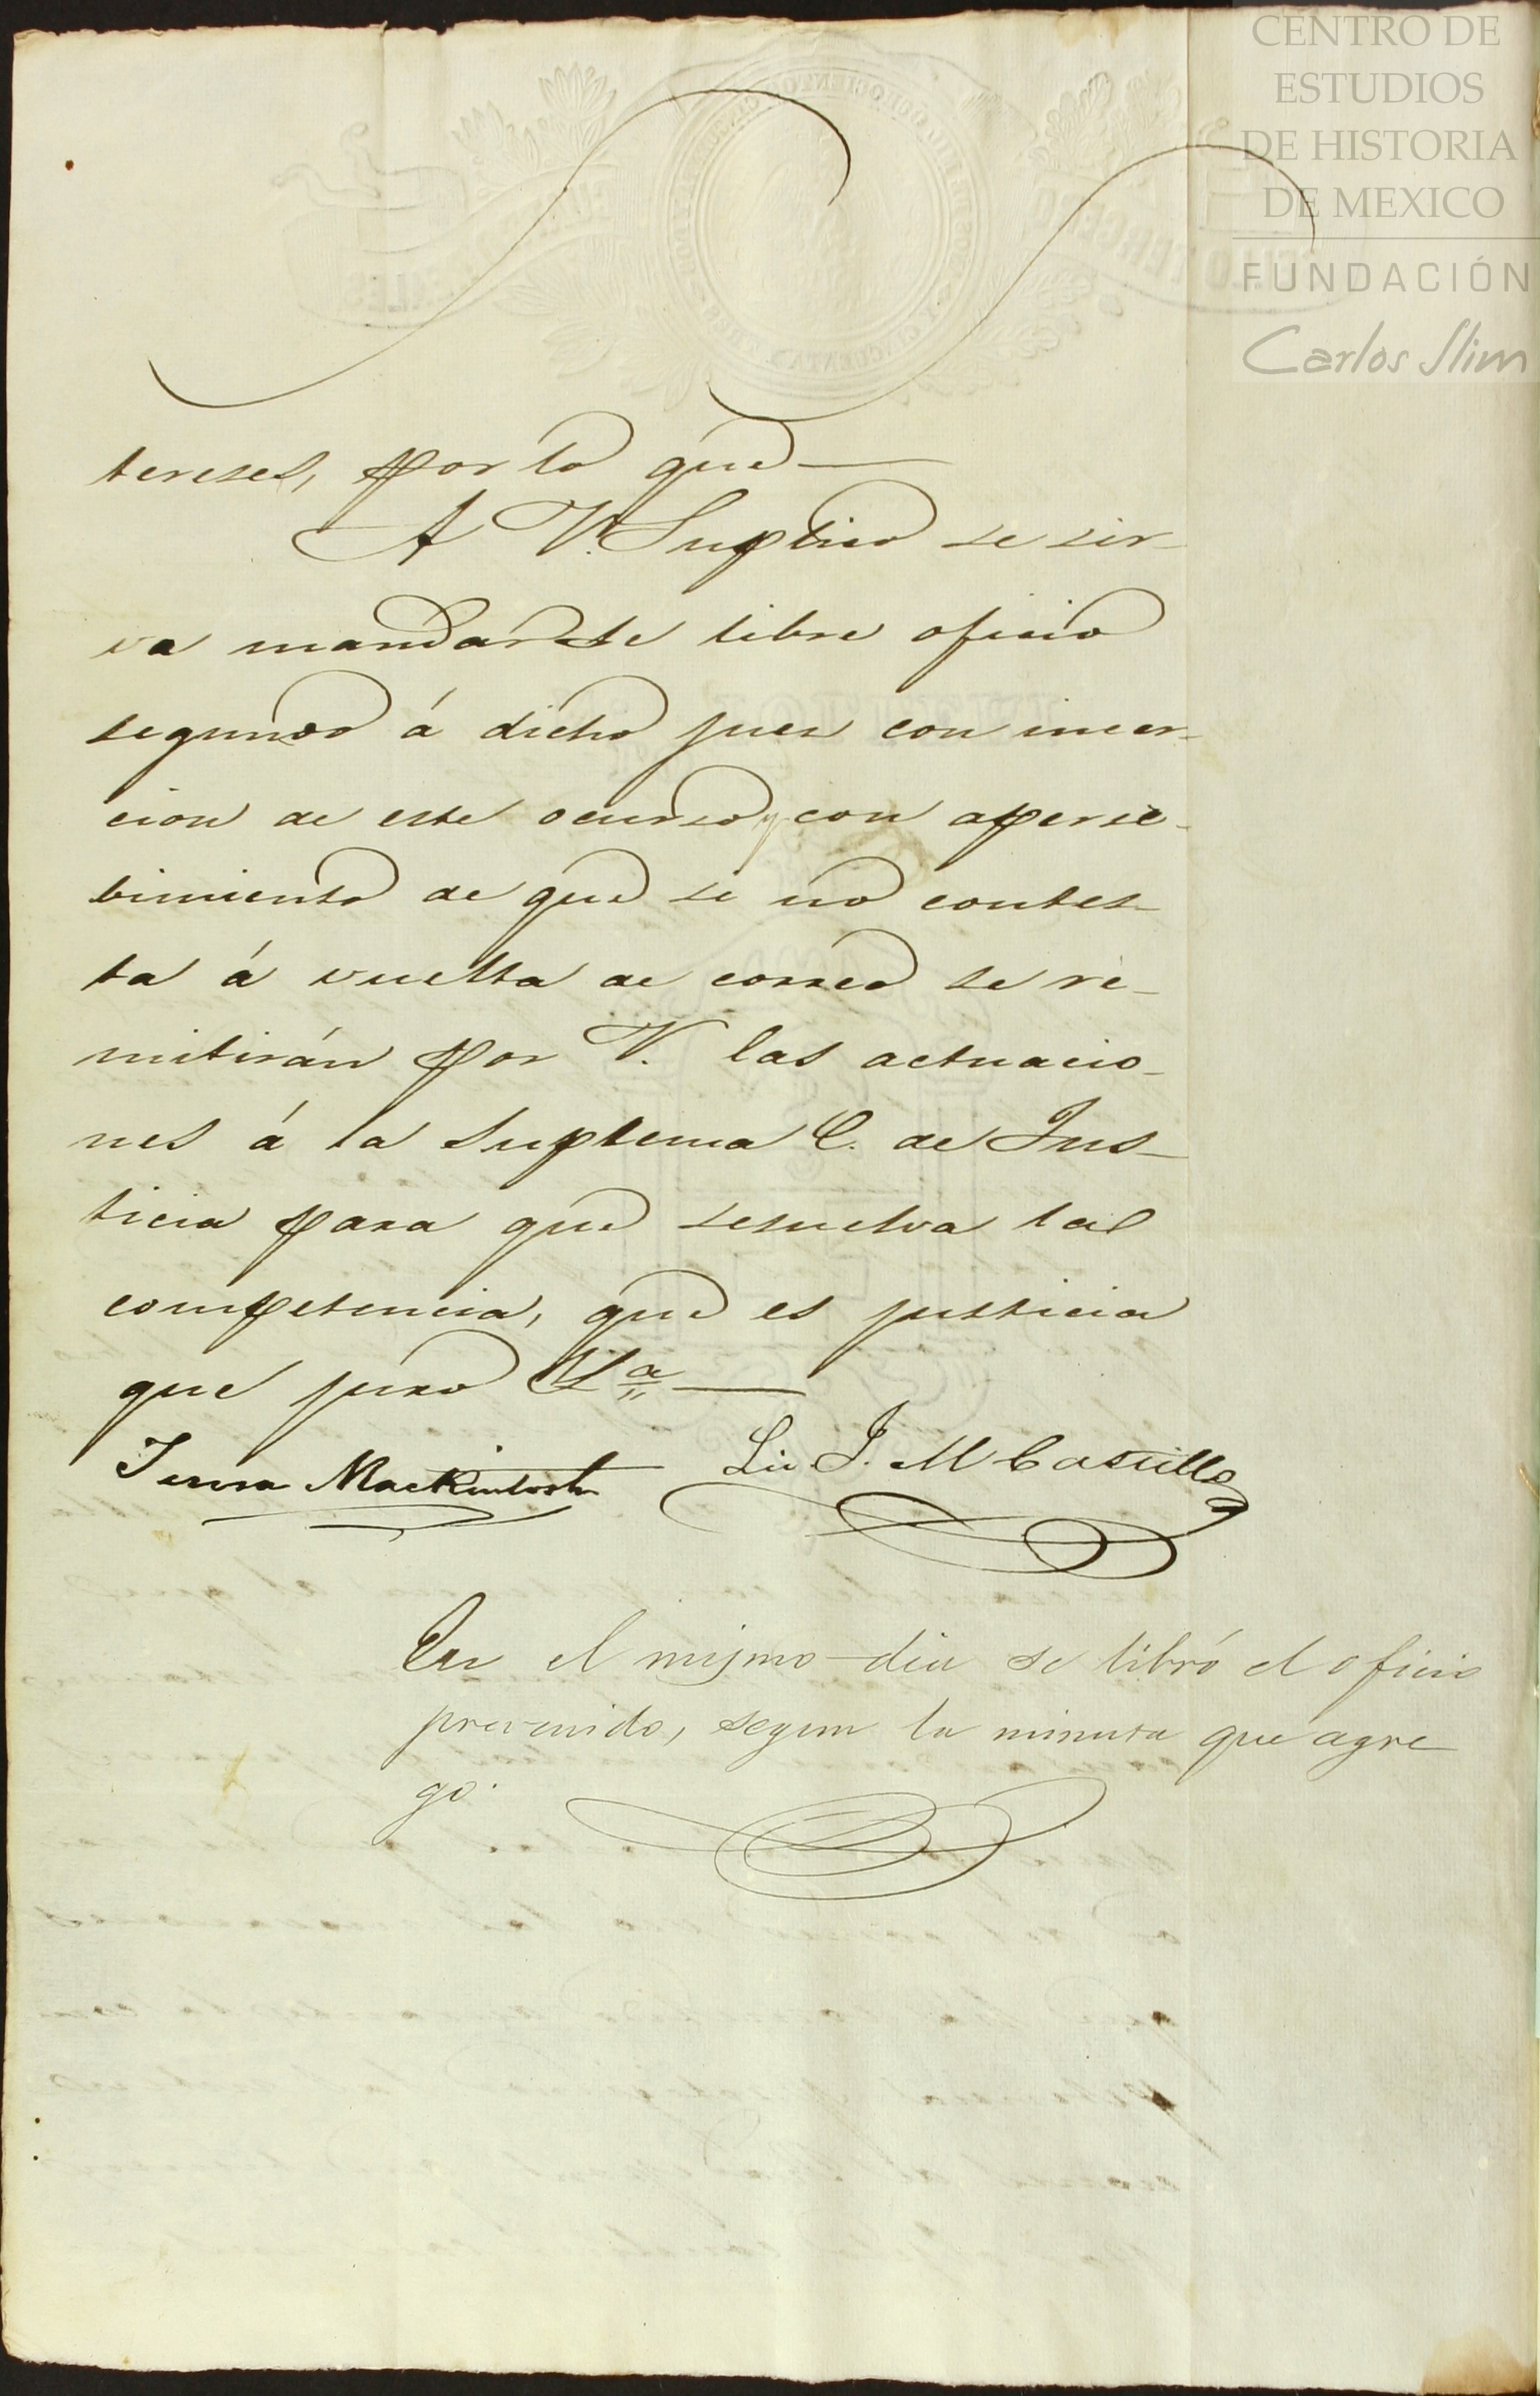 CENTRO DE
ESTUDIOS
DE HISTORIA
DE MEXICO
FUNDACIÓN
Carlos Slim
tereses, por lo que
A V. Suplico se sir-
va mandar se libre oficio
segundo á dicho juez con incer-
cion de este ocurso, y con aperse-
bimiento de que si no contes-
ta á vuelta de correo se re-
mitirán por V. las actuacio-
nes á la Suplema C. de Jus-
ticia para que resuelva la
competencia, que es justicia
que juro &a
Teresa Mackintosh Lic J. M Castillo
En el mismo dia se libró el oficio
prevenido, segun la minuta que agre
go.